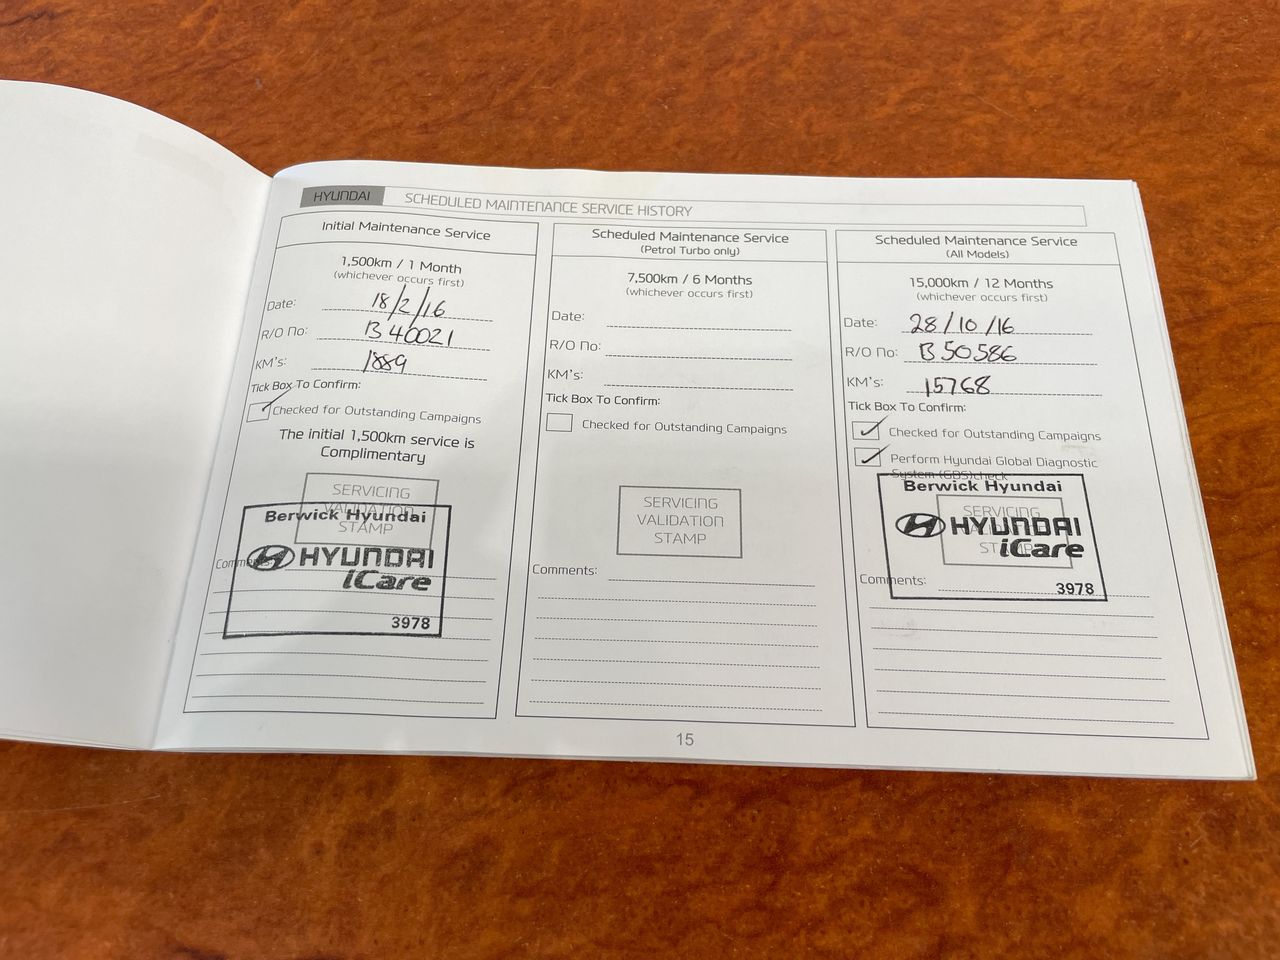 HYUNDAI
SCHEDULED MAINTENANCE SERVICE HISTORY
Initial Maintenance Service
1,500km / 1 Month
(whichever occurs first)
Date: 18/2/16
R/O No: B40021
KM's: 1889
Tick Box To Confirm:
Checked for Outstanding Campaigns
The initial 1,500km service is
Complimentary
SERVICING
VALIDATION
STAMP
Berwick Hyundai
HYUNDAI
iCare
3978
Comments:
Scheduled Maintenance Service
(Petrol Turbo only)
7,500km / 6 Months
(whichever occurs first)
Date:
R/O No:
KM's:
Tick Box To Confirm:
Checked for Outstanding Campaigns
SERVICING
VALIDATION
STAMP
Comments:
Scheduled Maintenance Service
(All Models)
15,000km / 12 Months
(whichever occurs first)
Date: 28/10/16
R/O No: B50586
KM's: 15768
Tick Box To Confirm:
Checked for Outstanding Campaigns
Perform Hyundai Global Diagnostic
System (GDS)check
SERVICING
VALIDATION
STAMP
Berwick Hyundai
HYUNDAI
iCare
3978
Comments:
15